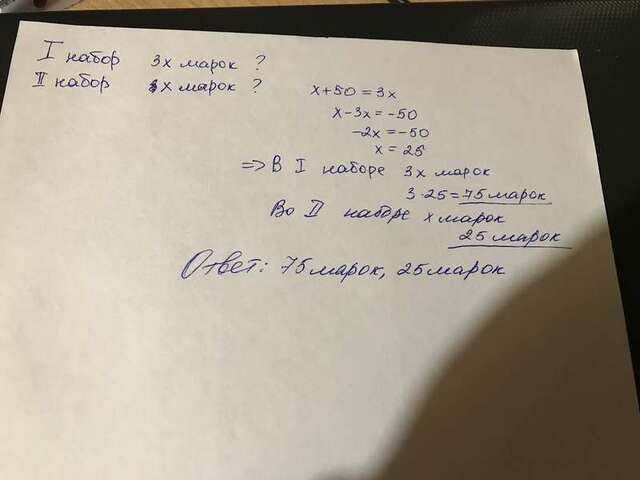 I набор 3x марок ?
II набор x марок ?
x+50=3x
x-3x=-50
-2x=-50
x=25
=> В I наборе 3x марок
3·25=75 марок
Во II наборе x марок
25 марок
Ответ: 75 марок, 25 марок